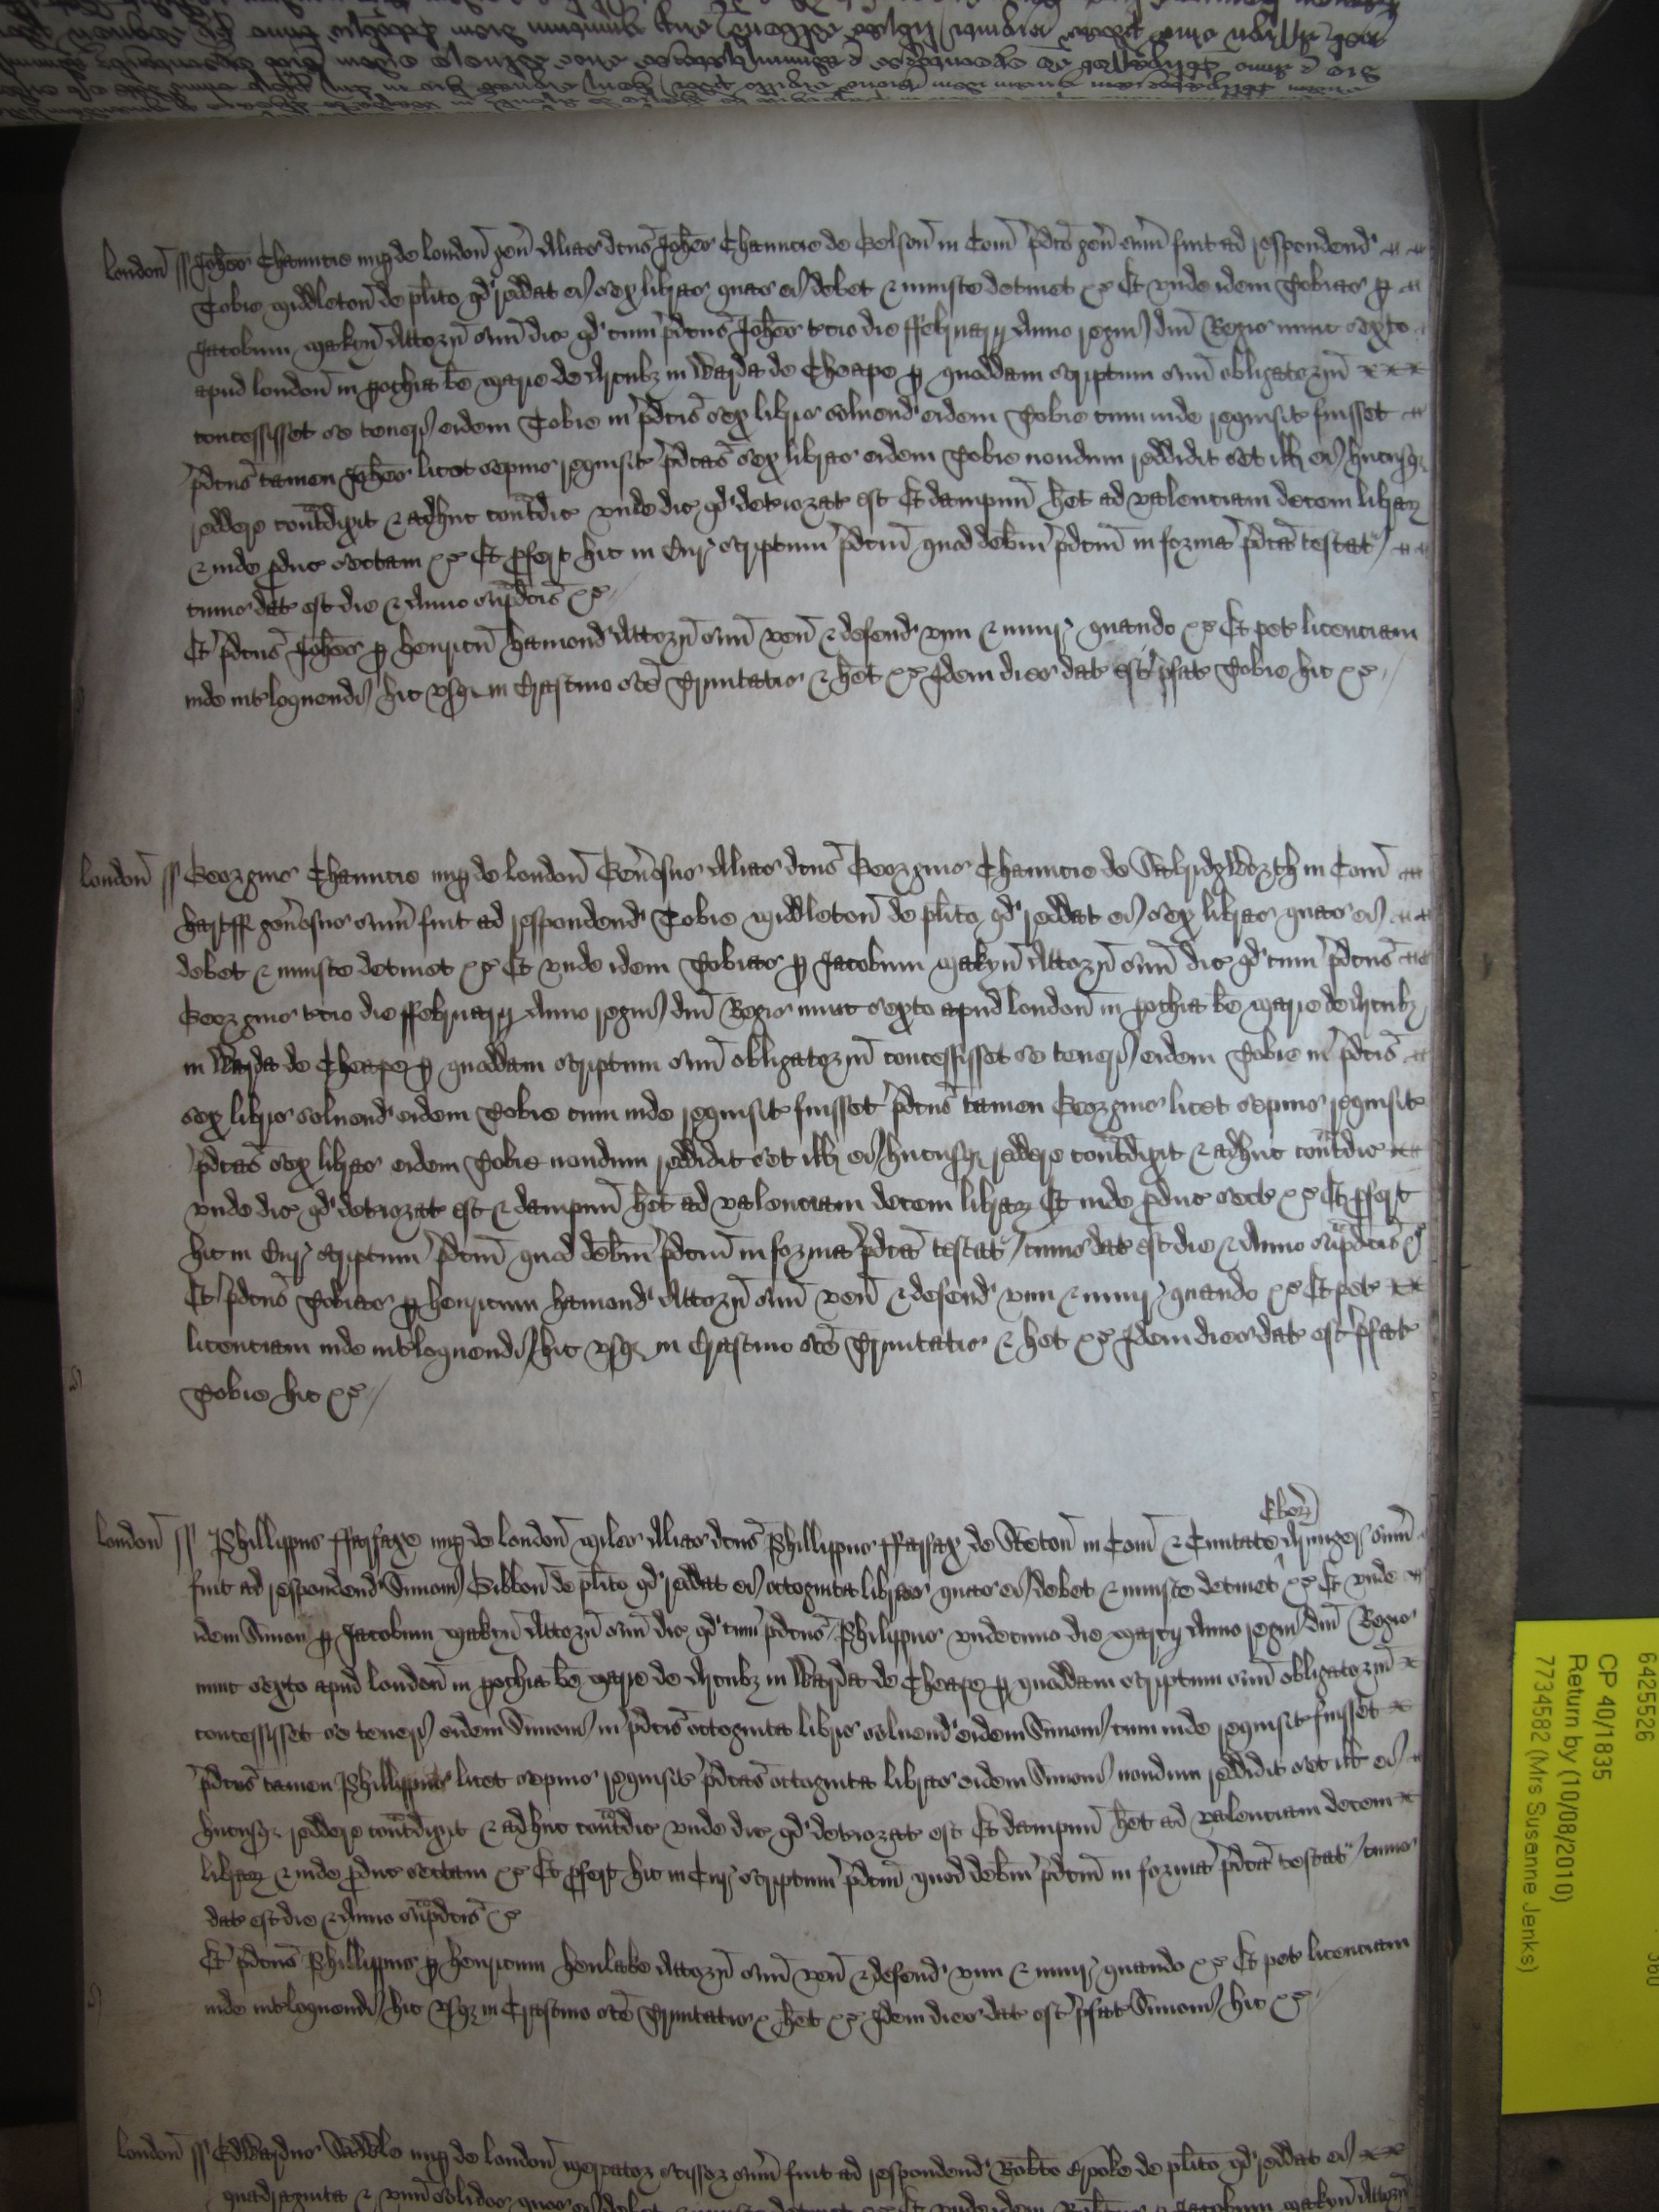 London ss Joh̄es Chauncie nup de London geñ Alias dc̄us Joh̄es Chauncie de Gelsoñ in Com̄ p̄dc̄o geñ sum̄ fuit ad respondend
Tobie Middleton̄ de pl̄ito qd reddat ei sex libras quas ei debet & iniuste detinet &c Et unde idem Tobias p
Jacobum Makyn̄ Attorn̄ suu̅ dic̄ qd cum p̄dc̄us Joh̄es t̄cio die ffebruarij Anno regni dn̄i Regis nunc sexto
apud London̄ in pochia b̄e Marie de Arcub3 in Warda de Cheape p quoddam scriptum suu̅ obligatoriu̅
concessisset se teneri eidem Tobie in p̄dc̄is sex libris solvend eidem Tobie cum inde requisit fuisset
p̄dc̄us tamen Joh̄es licet sepius requisit p̄dc̄as sex libras eidem Tobie nondum reddidit set ill ei hucusq
reddere cont̄dixit & adhuc cont̄dic̄ unde dic̄ qd deteriorat est Et dampnu̅ h̄et ad valenciam decem librar
& inde p̄duc̄ sectam &c Et p̄fert hic in Cur̄ scriptum p̄dc̄m quod deb̄m p̄dc̄m in forma p̄dc̄a testat
cuius dat est die & Anno sup̄dc̄is &c
Et p̄dc̄us Joh̄es p Henricu̅ Hamond Attorn̄ suu̅ ven̄ & defend vim & iniur̄ quando &c Et pet licenciam
inde int̄loquendi hic usq in Crastino sc̄e Trinitatis & h̄et &c Idem dies dat est p̄fat Tobie hic &c
London ss Georgius Chauncie nup de London̄ Gen̄osus Alias dc̄us Georgius Chauncie de Sabridgworth in Com̄
Hartff gen̄osus sum̄ fuit ad respondend Tobie Middleton̄ de pl̄ito qd reddat ei sex libras quas ei
debet & iniuste detinet &c Et unde idem Tobias p Jacobum Makyn̄ Attorn̄ suu̅ dic̄ qd cum p̄dc̄us
Georgius t̄cio die ffebruarij Anno regni dn̄i Regis nunc sexto apud London̄ in pochia b̄e Marie de Arcub3
in Warda de Cheape p quoddam scriptum suu̅ obligatoriu̅ concessisset se teneri eidem Tobie in p̄dc̄is
sex libris solvend eidem Tobie cum inde requisit fuisset p̄dc̄us tamen Georgius licet sepius requisit
p̄dc̄as sex libras eidem Tobie nondum reddidit set ill ei hucusq reddere cont̄dixit & adhuc cont̄dic̄
unde dic̄ qd deteriorat est & dampnu̅ h̄et ad valenciam decem librar Et inde p̄duc̄ sect &c Et p̄fert
hic in Cur̄ scriptum p̄dc̄m quod deb̄m p̄dc̄m in forma p̄dc̄a testat cuius dat est die & Anno sup̄dc̄is &c
Et p̄dc̄us Tobias p Henricum Hamond Attorn̄ suu̅ ven̄ & defend vim & iniur̄ quando &c Et pet
licenciam inde int̄loquendi hic usq in Crastino sc̄e Trinitatis & h̄et &c Idem dies dat est p̄fat
Tobie hic &c
Ebor
London ss Phillippus ffairfaxe nup de London̄ Miles Alias dc̄us Phillippus ffairfax de Steton̄ in Com̄ & Civitate Armiger sum̄
fuit ad respondend Simoni Gibbon̄ de pl̄ito qd reddat ei octoginta libras quas ei debet & iniuste detinet &c Et unde
idem Simon p Jacobum Makyn̄ Attorn̄ suu̅ dic̄ qd cum p̄dc̄us Philippus undecimo die Marcij Anno regni dn̄i Regis
nunc sexto apud London̄ in pochia b̄e Marie de Arcub3 in Warda de Cheape p quoddam scriptum suu̅ obligatoriu̅
concessisset se teneri eidem Simoni in p̄dc̄is octoginta libris solvend eidem Simoni cum inde requisit fuisset
p̄dc̄us tamen Phillippus licet sepius requisit p̄dc̄as octoginta libras eidem Simoni nondum reddidit set ill ei
hucusq reddere cont̄dixit & adhuc cont̄dic̄ unde dic̄ qd deteriorat est Et dampnu̅ h̄et ad valenciam decem
librar & inde p̄duc̄ sectam &c Et p̄fert hic in Cur̄ scriptum p̄dc̄m quod deb̄m p̄dc̄m in forma p̄dc̄a testat cuius
dat est die & Anno sup̄dc̄is &c
Et p̄dc̄us Phillippus p Henricum Henlake Attorn̄ suu̅ ven̄ & defend vim & iniur̄ quando &c Et pet licenciam
inde int̄loquendi hic usq in Crastino sc̄e Trinitatis & h̄et &c Idem dies dat est p̄fat Simoni hic &c
London ss Edwardus nup de London̄ sum̄ fuit ad respondend Rob̄to de pl̄ito qd reddat ei
quadraginta & solidos quos ei debet & iniuste detinet &c Et unde idem Jacobum Makyn̄ Attorn̄
6425526
CP 40/1835
Return by (10/08/2010)
7734582 (Mrs Susanne Jenks)